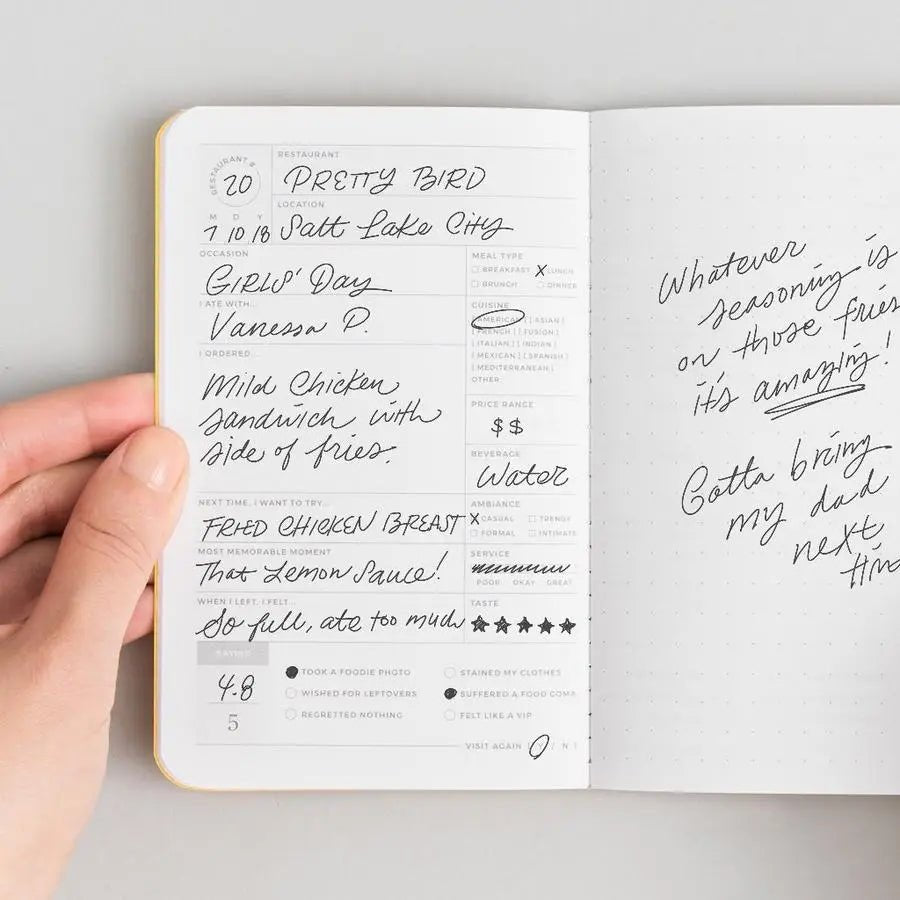 RESTAURANT #
20
RESTAURANT
PRETTY BIRD
M D Y
7 10 18
LOCATION
Salt Lake City
OCCASION
GIRLS' Day
MEAL TYPE
BREAKFAST X LUNCH
BRUNCH DINNER
I ATE WITH...
Vanessa P.
CUISINE
[AMERICAN] [ASIAN]
[FRENCH] [FUSION]
[ITALIAN] [INDIAN]
[MEXICAN] [SPANISH]
[MEDITERRANEAN]
OTHER
I ORDERED...
Mild Chicken
sandwich with
side of fries.
PRICE RANGE
$$
BEVERAGE
Water
NEXT TIME, I WANT TO TRY...
FRIED CHICKEN BREAST
AMBIANCE
X CASUAL TRENDY
FORMAL INTIMATE
MOST MEMORABLE MOMENT
That Lemon Sauce!
SERVICE
POOR OKAY GREAT
WHEN I LEFT, I FELT...
So full, ate too much
TASTE
★★★★★
RATING
4.8
5
TOOK A FOODIE PHOTO
WISHED FOR LEFTOVERS
REGRETTED NOTHING
STAINED MY CLOTHES
SUFFERED A FOOD COMA
FELT LIKE A VIP
VISIT AGAIN [Y / N]
Whatever
seasoning is
on those fries
it's amazing!
Gotta bring
my dad
next